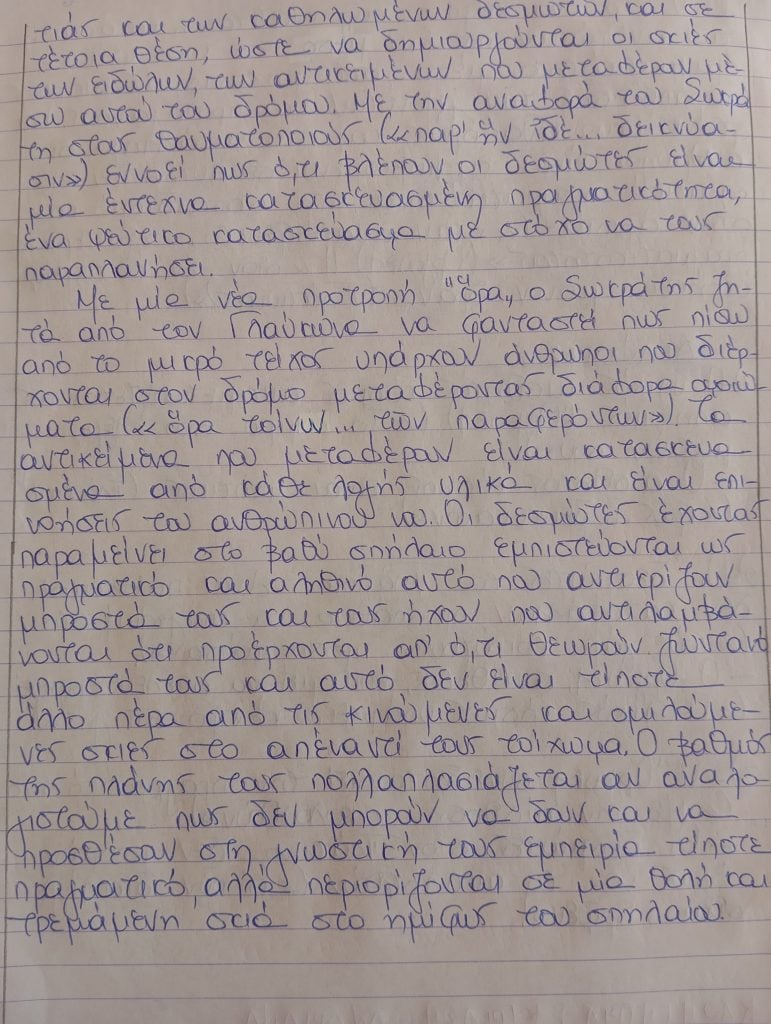 τιάς και των καθηλωμένων δεσμωτών, και σε
τέτοια θέση, ώστε να δημιουργούνται οι σκιές
των ειδώλων, των αντικειμένων που μεταφέρουν μέ-
σω αυτού του δρόμου. Με την αναφορά του Σωκρά
τη στους θαυματοποιούς («παρ' ἥν ἰδέ... δεικνύα-
σιν») εννοεί πως ό,τι βλέπουν οι δεσμώτες είναι
μία έντεχνα κατασκευασμένη πραγματικότητα,
ένα ψεύτικο κατασκεύασμα με στόχο να τους
παραπλανήσει.
Με μία νέα προτροπή "ὅρα", ο Σωκράτης ζη-
τά από τον Γλαύκωνα να φανταστεί πως πίσω
από το μικρό τείχος υπάρχουν άνθρωποι που διέρ-
χονται στον δρόμο μεταφέροντας διάφορα ομοιώ-
ματα («ὅρα τοίνυν... τῶν παραφερόντων»). Τα
αντικείμενα που μεταφέρουν είναι κατασκευα
σμένα από κάθε λογής υλικό και είναι επι-
νοήσεις του ανθρώπινου νου. Οι δεσμώτες έχοντας
παραμείνει στο βαθύ σπήλαιο εμπιστεύονται ως
πραγματικό και αληθινό αυτό που αντικρίζουν
μπροστά τους και τους ήχους που αντιλαμβά-
νονται ότι προέρχονται απ' ό,τι θεωρούν ζωντανό
μπροστά τους και αυτό δεν είναι τίποτε
άλλο πέρα από τις κινούμενες και ομιλούμε-
νες σκιές στο απέναντί τους τοίχωμα. Ο βαθμός
της πλάνης τους πολλαπλασιάζεται αν αναλο
γιστούμε πως δεν μπορούν να δουν και να
προσθέσουν στη γνωστική τους εμπειρία τίποτε
πραγματικό, αλλά περιορίζονται σε μία θολή και
τρεμάμενη σκιά στο ημίφως του σπηλαίου.